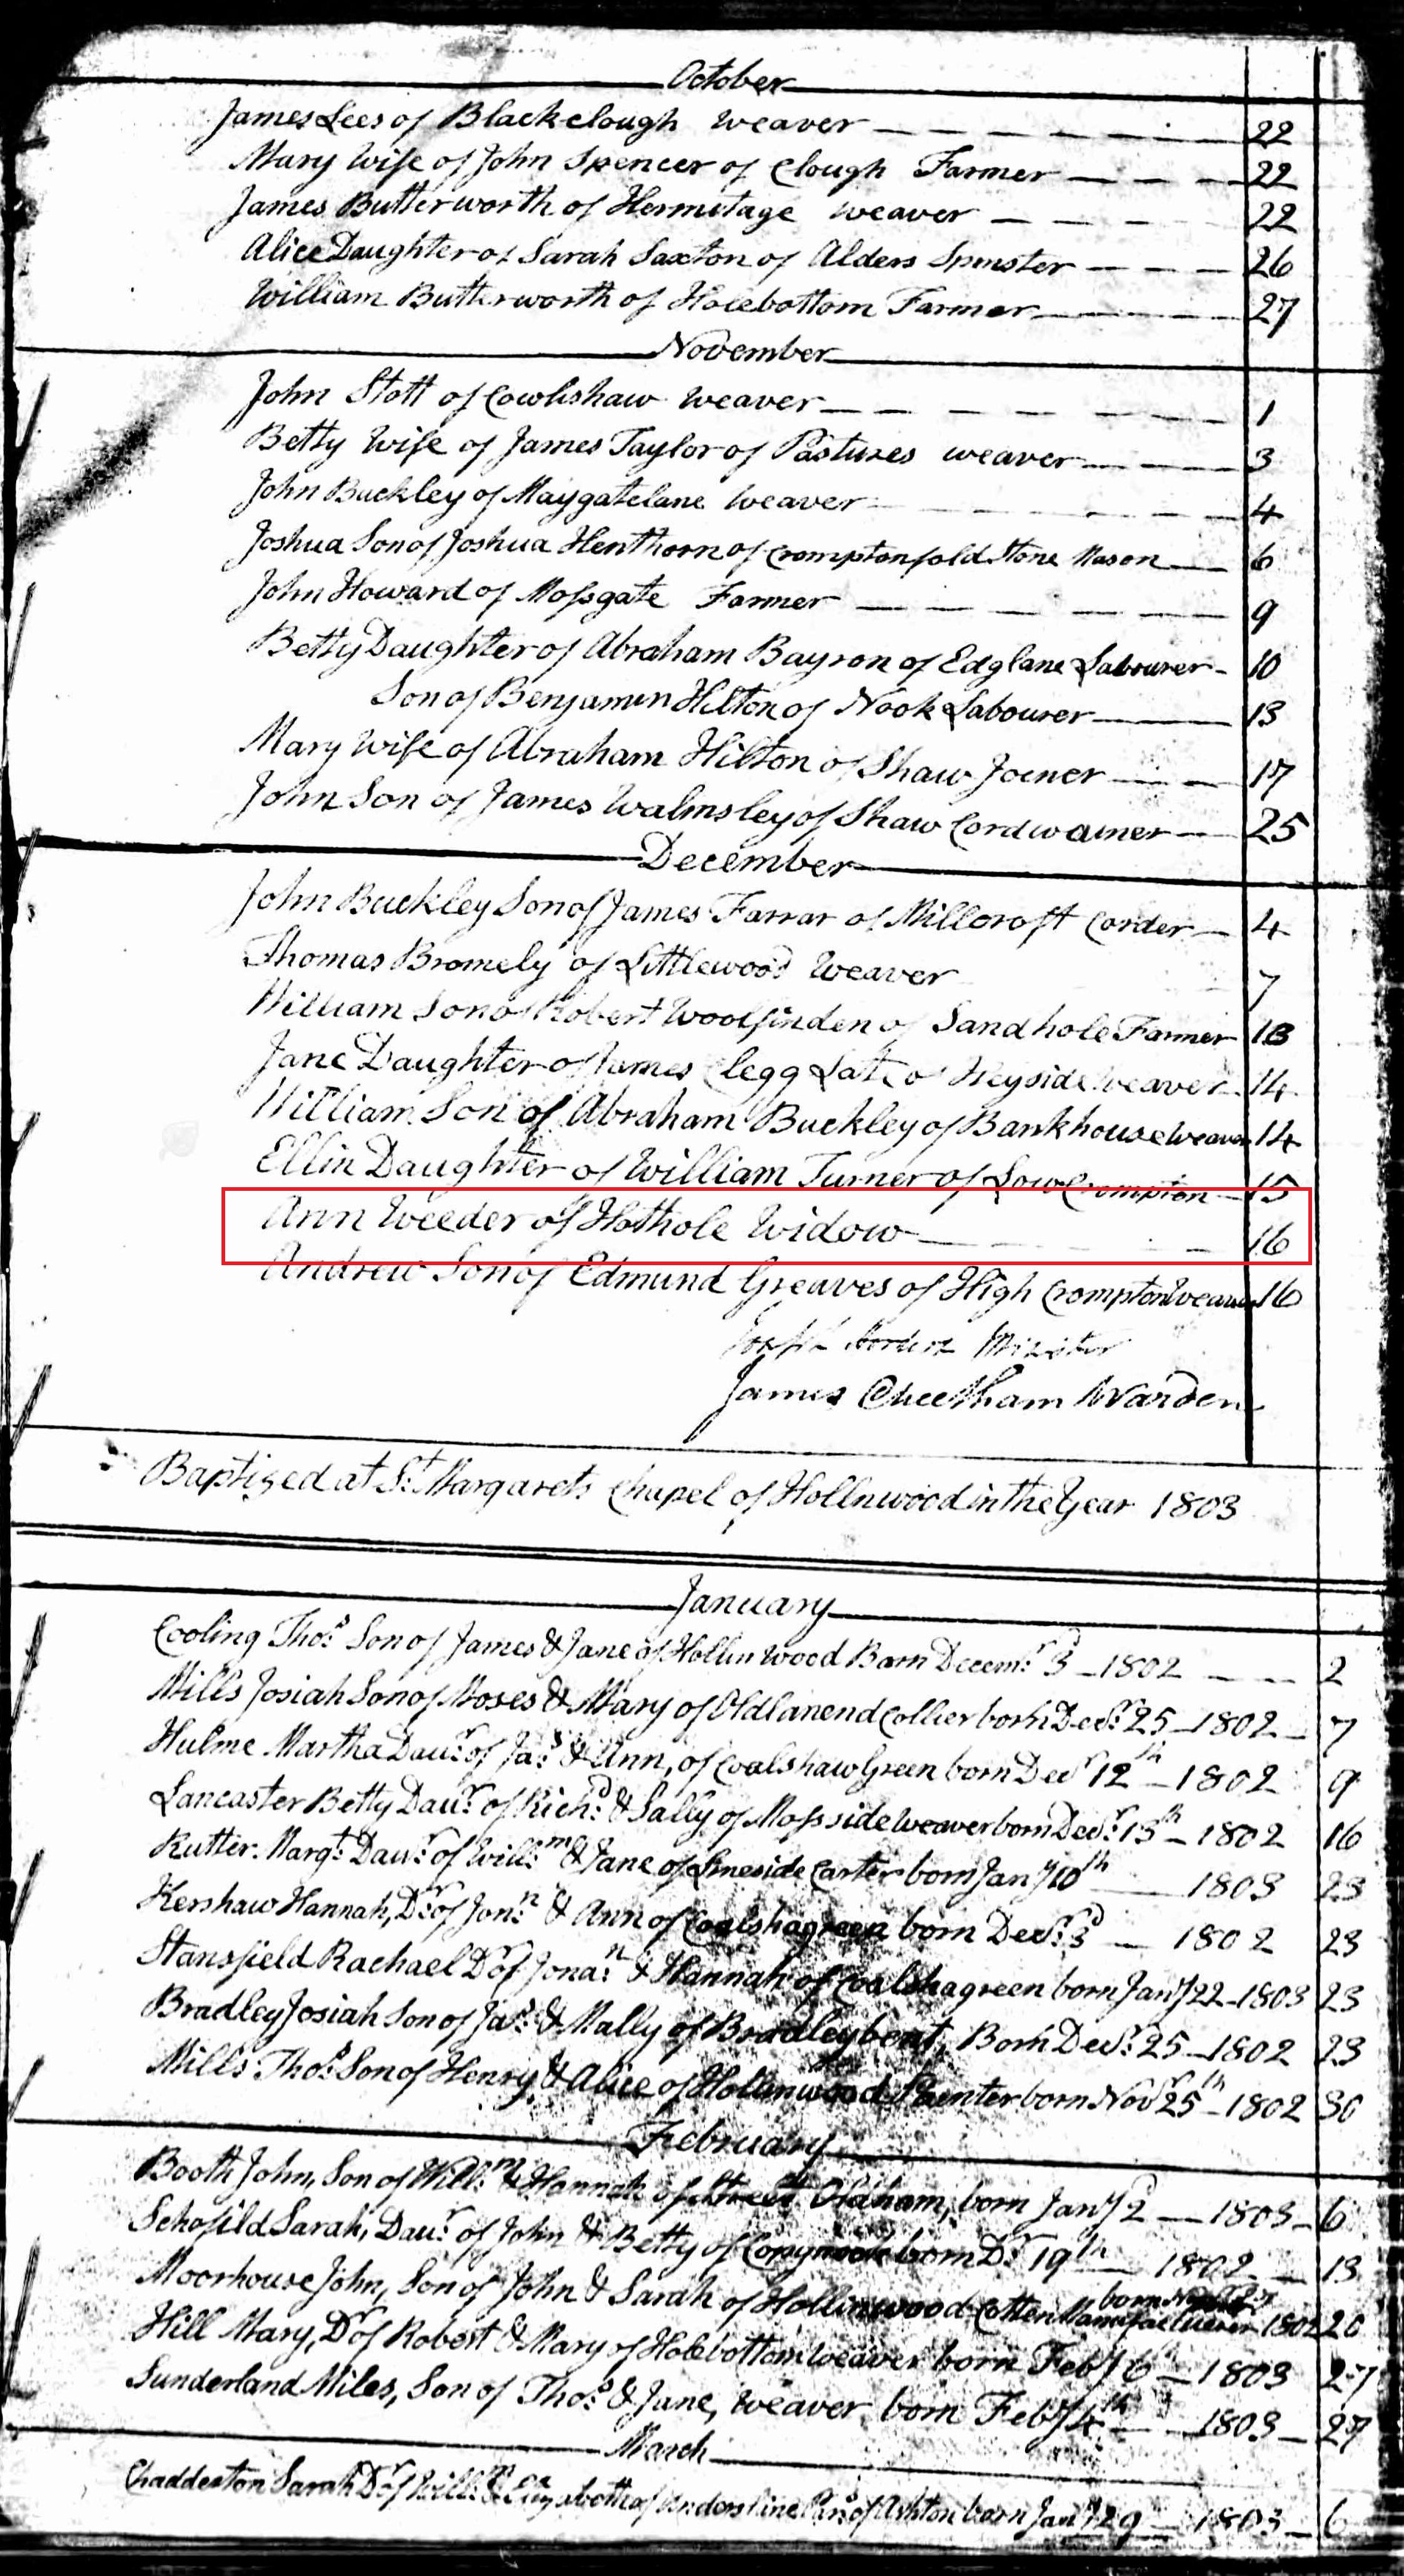 October
James Lees of Blackclough Weaver 22
Mary Wife of John Spencer of Clough Farmer 22
James Butterworth of Hermitage Weaver 22
Alice Daughter of Sarah Saxton of Alders Spinster 26
William Butterworth of Holebottom Farmer 27
November
John Stott of Cowlishaw Weaver 1
Betty Wife of James Taylor of Pastures weaver 3
John Buckley of Maygatelane Weaver 4
Joshua Son of Joshua Henthorn of Cromptonfold Stone Mason 6
John Howard of Mossgate Farmer 9
Betty Daughter of Abraham Bayron of Edglane Labourer 10
Son of Benjamin Hilton of Nook Labourer 13
Mary Wife of Abraham Hilton of Shaw Joiner 17
John Son of James Walmsley of Shaw Cordwainer 25
December
John Buckley Son of James Farrar of Millcroft Carder 4
Thomas Bromely of Littlewood Weaver 7
William Son of Robert Woolfinden of Sandhole Farmer 13
Jane Daughter of James Clegg Late of Heyside Weaver 14
William Son of Abraham Buckley of Bankhouse Weaver 14
Ellin Daughter of William Turner of Low Crompton 15
Ann Weeder of Hothole Widow 16
Andrew Son of Edmund Greaves of High Crompton Weaver 16
Joseph Minister
James Cheetham Warden
Baptized at St Margarets Chapel of Hollinwood in the Year 1803
January
Cooling Thos Son of James & Jane of Hollinwood Born Decemr 3d 1802 2
Mills Josiah Son of Moses & Mary of Oldlanend Collier born Decr 25 1802 7
Hulme Martha Daur of Jas & Ann, of Coalshaw Green born Decr 12th 1802 9
Lancaster Betty Daur of Richd & Sally of Moss side Weaver born Decr 13th 1802 16
Rutter Margt Daur of Willm & Jane of Limeside Carter born Jany 10th 1803 23
Kershaw Hannah, Dr of Jonn & Ann of Coalshagreen born Decr 3d 1802 23
Stansfield Rachael Dr of Jonan & Hannah of Coalshagreen born Jany 22 1803 23
Bradley Josiah Son of Jas & Mally of Bradleybent, Born Decr 25 1802 23
Mills Thos Son of Henry & Alice of Hollinwood Painter born Novr 25th 1802 30
February
Booth John, Son of Willm & Hannah of Street Oldham, born Jany 2d 1803 6
Schofild Sarah, Daur of John & Betty of born Dr 19th 1802 13
Moorhouse John, Son of John & Sarah of Hollinwood Cotten Manufacturer born 1802 20
Hill Mary, Dr of Robert & Mary of Holebottom Weaver born Feby 6th 1803 27
Sunderland Miles, Son of Thos & Jane, Weaver born Feby 4th 1803 27
March
Chadderton Sarah Dr of Willm & Elizabeth of Undersline Pars of Ashton born Jany 29 1803 6